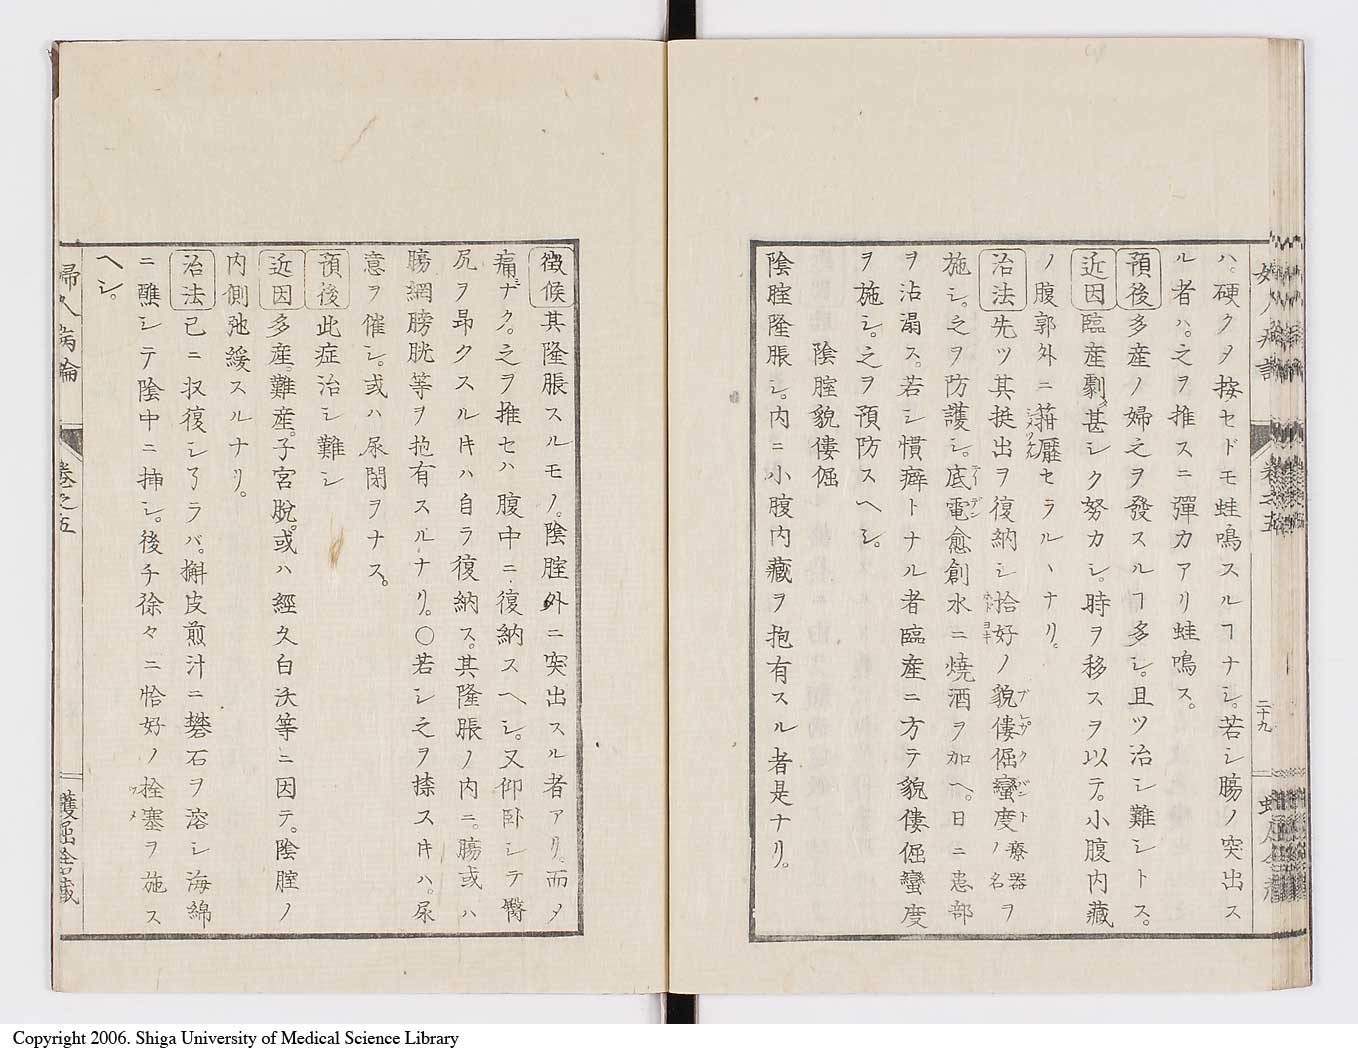 ハ。硬クメ按セドモ蛙鳴スルヿナシ。若シ腸ノ突出ス
ル者ハ。之ヲ推スニ彈力アリ蛙鳴ス。
預後 多産ノ婦之ヲ發スルヿ多シ。且ツ治シ難シトス。
近因 臨産劇甚シク努力シ。時ヲ移スヲ以テ。小腹内藏
ノ腹郭外ニ搾壓セラルヽナリ。
治法 先ツ其挺出ヲ復納シ恰好ノ貌僂倔蠻度ノ療器名ヲ
施シ。之ヲ防護シ。底電愈創水ニ焼酒ヲ加ヘ。日ニ患部
ヲ沾溻ス。若シ慣癖トナル者臨産ニ方テ貌僂倔蠻度
ヲ施シ。之ヲ預防スヘシ。
陰腟貌僂倔
陰腟隆脹シ。内ニ小腹内藏ヲ抱有スル者是ナリ。
二十九
徴候 其隆脹スルモノ。陰腟外ニ突出スル者アリ。而メ
痛ナク。之ヲ推セハ腹中ニ復納スヘシ。又仰卧シテ臀
尻ヲ昂クスルキハ自ラ復納ス。其隆脹ノ内ニ。腸或ハ
腸網膀胱等ヲ抱有スルナリ。〇若シ之ヲ捺スキハ。尿
意ヲ催シ。或ハ尿閉ヲナス。
預後 此症治シ難シ
近因 多産。難産。子宮脫。或ハ經久白沃等ニ因テ。陰腟ノ
内側弛緩スルナリ。
治法 已ニ収復シ了ラバ。槲皮煎汁ニ礬石ヲ溶シ海綿
ニ醮シテ陰中ニ挿シ。後チ徐々ニ恰好ノ拴塞ヲ施ス
ヘシ。
婦人病論 卷之五
Copyright 2006. Shiga University of Medical Science Library